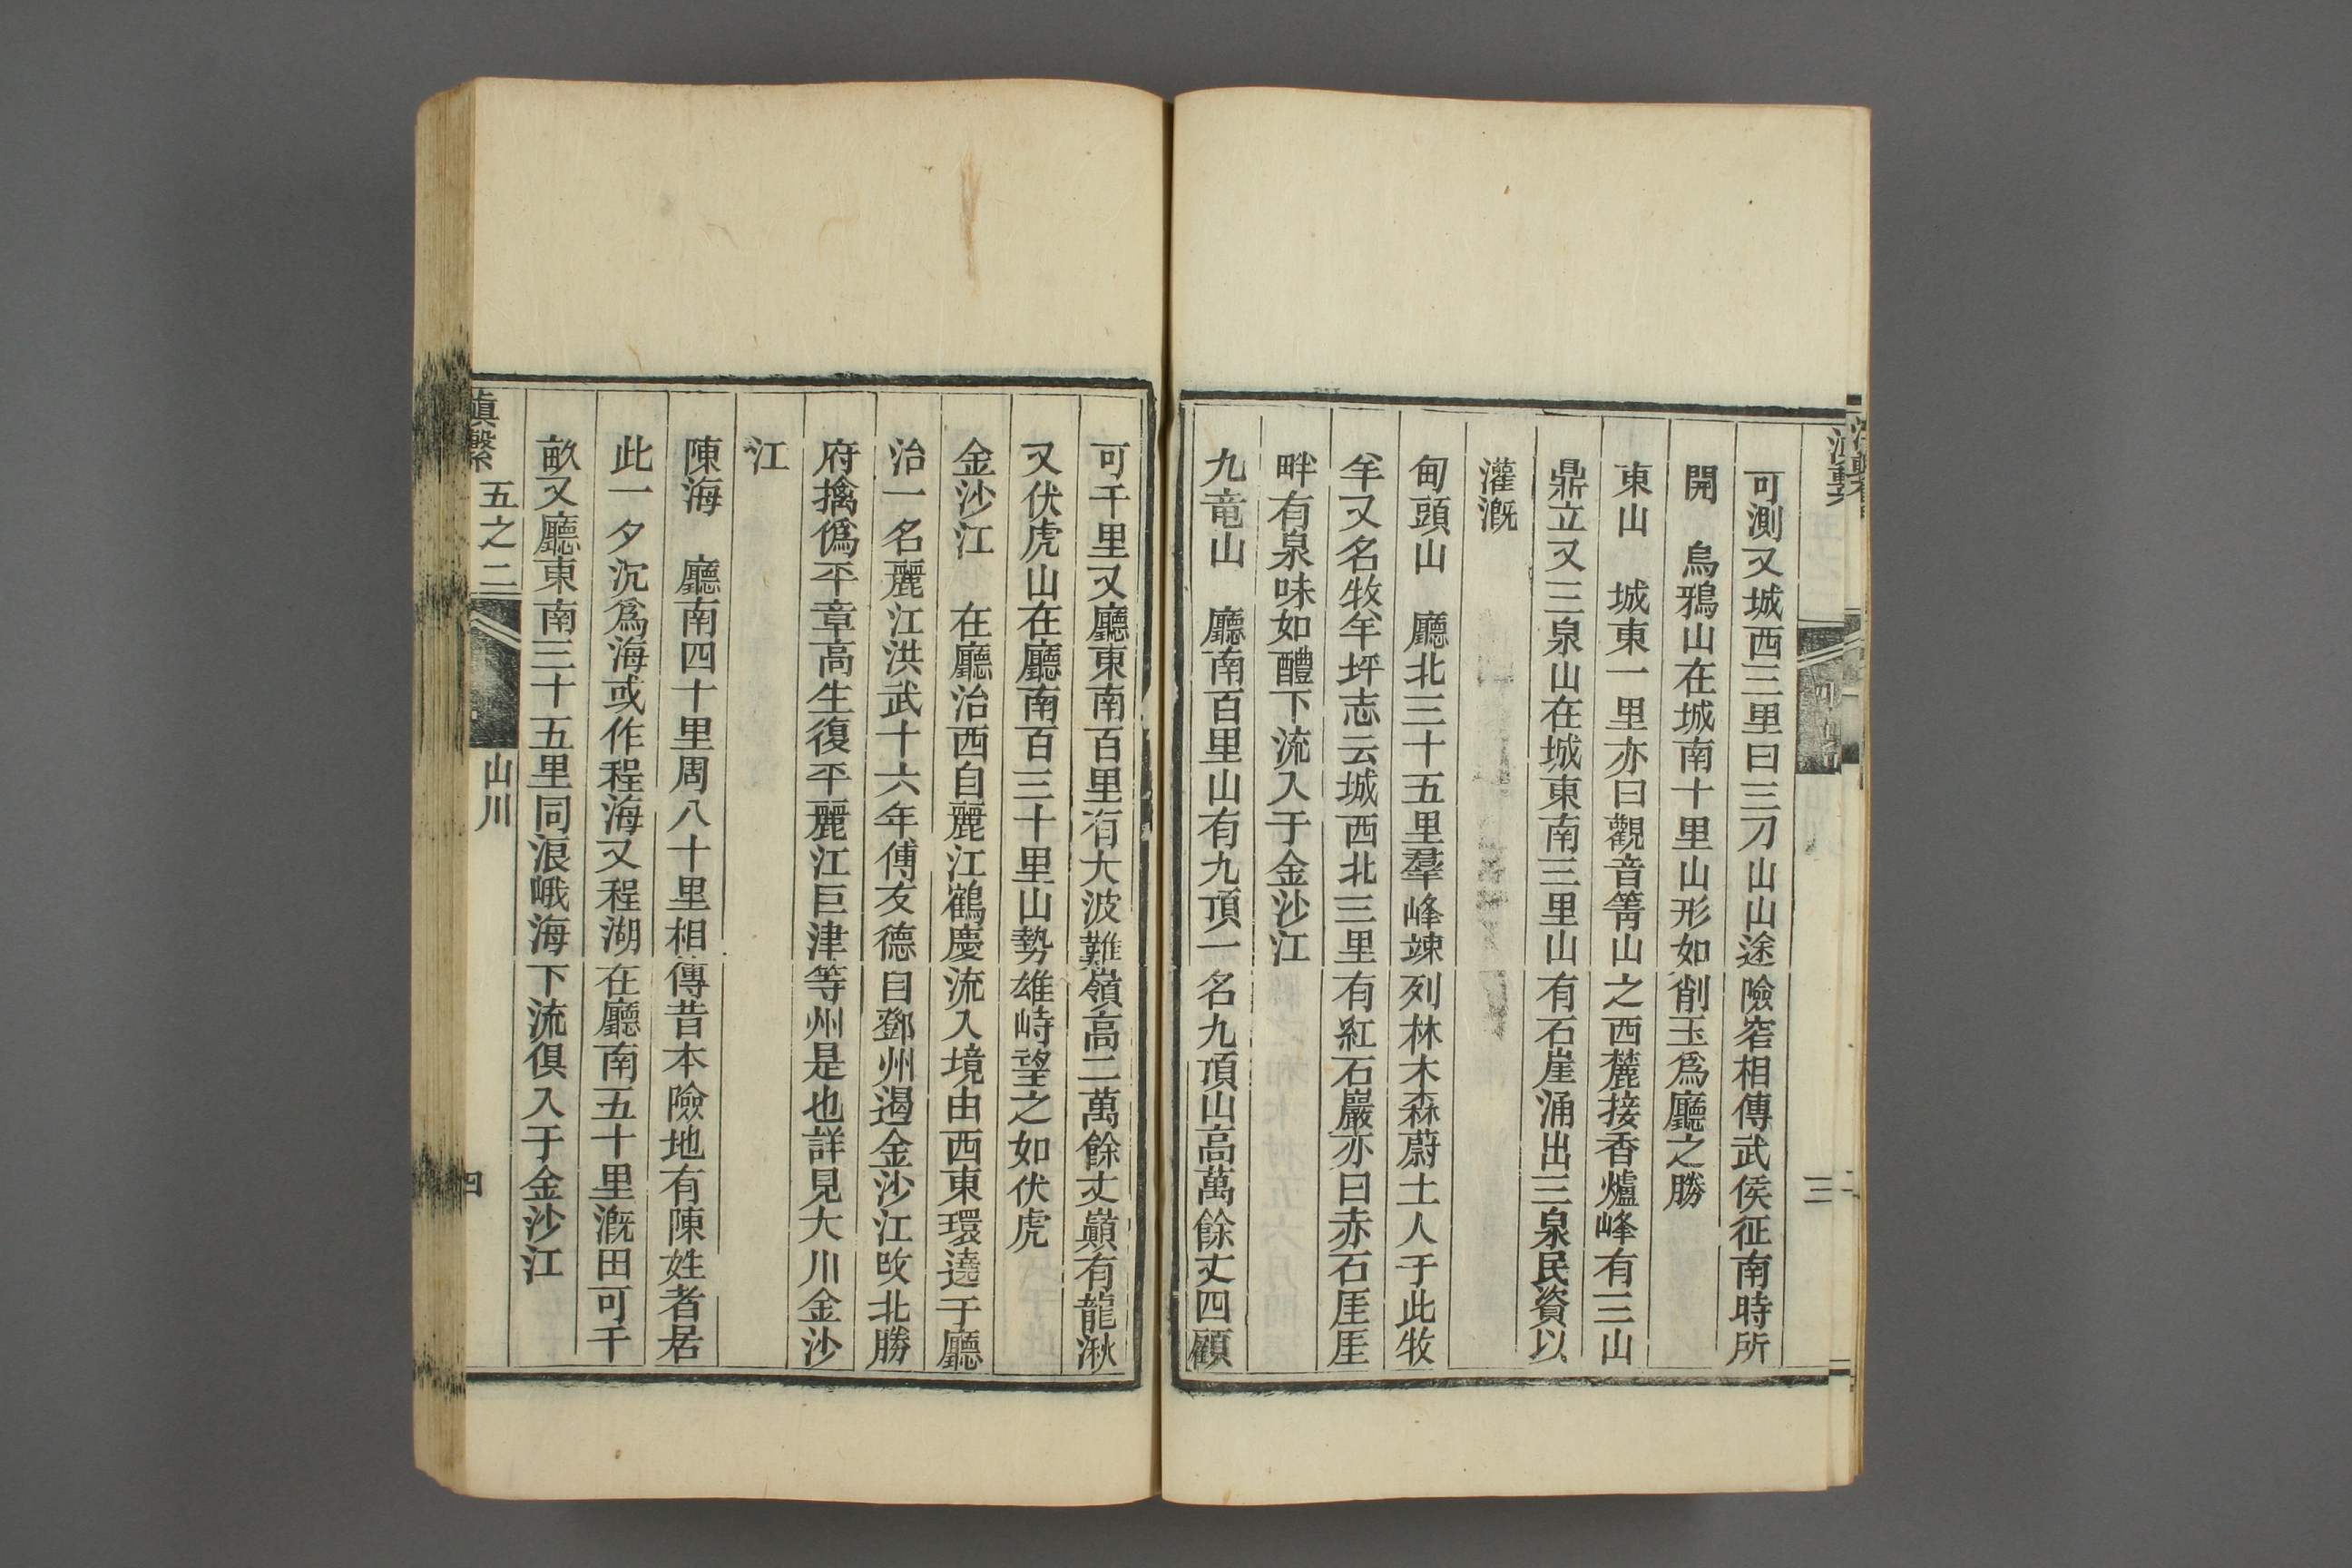 三
可測又城西三里曰三刀山山途險窄相傳武侯征南時所
開　烏鴉山在城南十里山形如削玉爲廳之勝
東山　城東一里亦曰觀音箐山之西麓接香爐峰有三山
鼎立又三泉山在城東南三里山有石崖涌出三泉民資以
灌漑
甸頭山　廳北三十五里羣峰竦列林木森蔚土人于此牧
羊又名牧羊坪志云城西北三里有紅石巖亦曰赤石厓厓
畔有泉味如醴下流入于金沙江
九竜山　廳南百里山有九頂一名九頂山高萬餘丈四顧
可千里又廳東南百里有大波難嶺高二萬餘丈巔有龍湫
又伏虎山在廳南百三十里山勢雄峙望之如伏虎
金沙江　在廳治西自麗江鶴慶流入境由西東環遶于廳
治一名麗江洪武十六年傅友德自鄧州過金沙江攻北勝
府擒僞平章高生復平麗江巨津等州是也詳見大川金沙
江
陳海　廳南四十里周八十里相傳昔本險地有陳姓者居
此一夕沉爲海或作程海又程湖在廳南五十里漑田可千
畝又廳東南三十五里同浪峨海下流俱入于金沙江
滇繫　五之二　山川　四